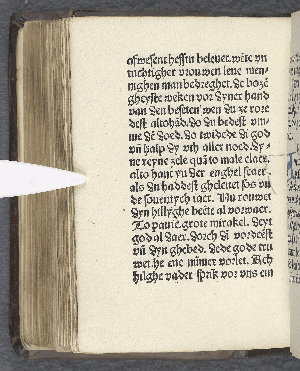 afwesent hefstu beleuet. wete vñ
tuchtigher vrouwen lene men-
nighen man bedreghet. De boze
gheyste weken vor dyner hand
van den beseten wen du ze rore
dest altohãd. So du bedest um-
me dẽ doed. So twidede di god
vñ halp dy vth aller noed. Dy-
ne reyne zele quã to male claer.
alto hant yn der enghel scaer
als du haddest gheleuet sos vñ
de souentych iaer. Nu rouwet
dyn hillyghe beẽte al vorwaer.
To pauie. grote mirakel. deyt
god al daer. dorch di vordeẽst
vñ dyn ghebed. Dede gode tru
wet. he ene nũmer vorlet. Ach
hilghe vader sprik vor vns ein